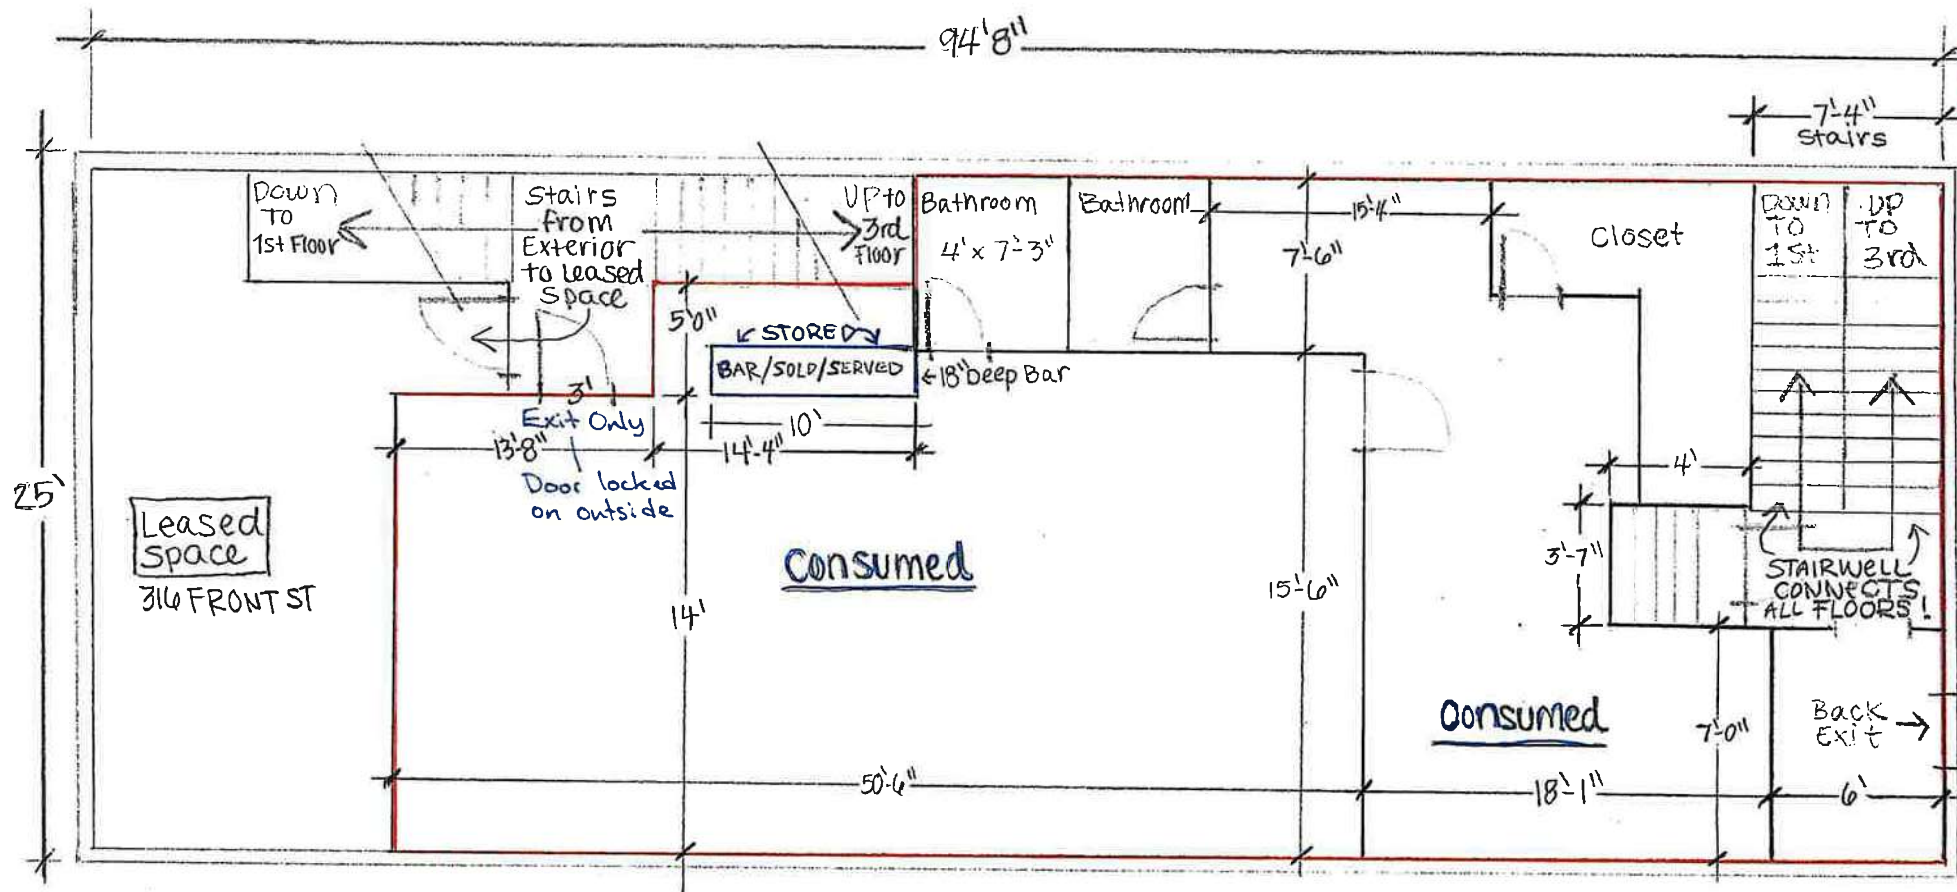 94'8"
7'-4"
Stairs
Down
TO
1st Floor
Stairs
from
Exterior
to Leased
Space
UP to
3rd
Floor
Bathroom
4' x 7'-3"
Bathroom
15'-4"
7'-6"
Closet
DOWN
TO
1st
UP
TO
3rd
5'0"
STORED
BAR/SOLD/SERVED
18" Deep Bar
3'
Exit Only
13'-8"
10'
14'-4"
Door locked
on outside
4'
25'
Leased
Space
316 FRONT ST
Consumed
14'
15'-6"
3'-7"
STAIRWELL
CONNECTS
ALL FLOORS!
Consumed
7'-0"
Back
Exit
50'-6"
18'-1"
6'